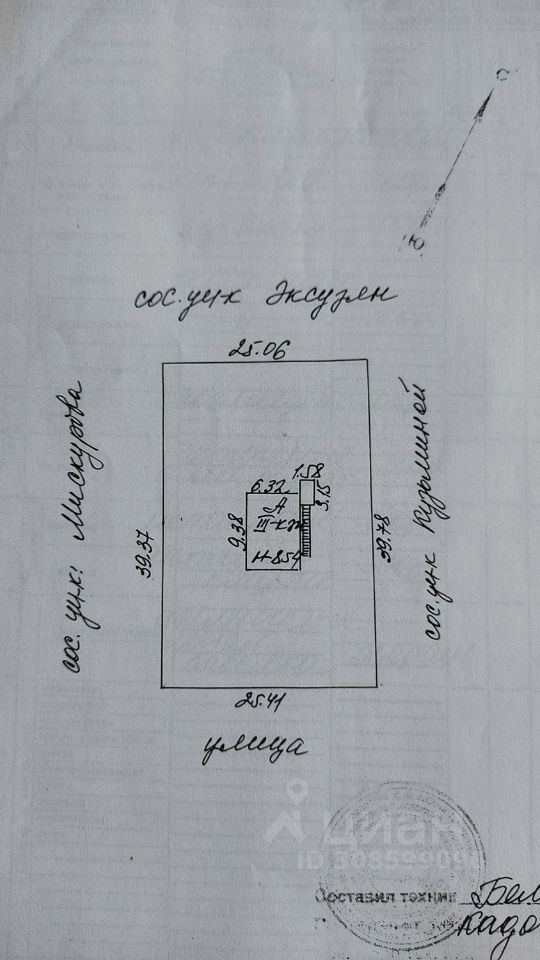 С
Ю
сос. уч-к Эксузян
25.06
сос. уч-к: Мискурова
39.37
1.58
6.32
3.15
А
9.38
III-к.ж
H-8.54
39.78
сос. уч-к Кузьминой
25.41
улица
Циан
Составил техник Бел
кадо